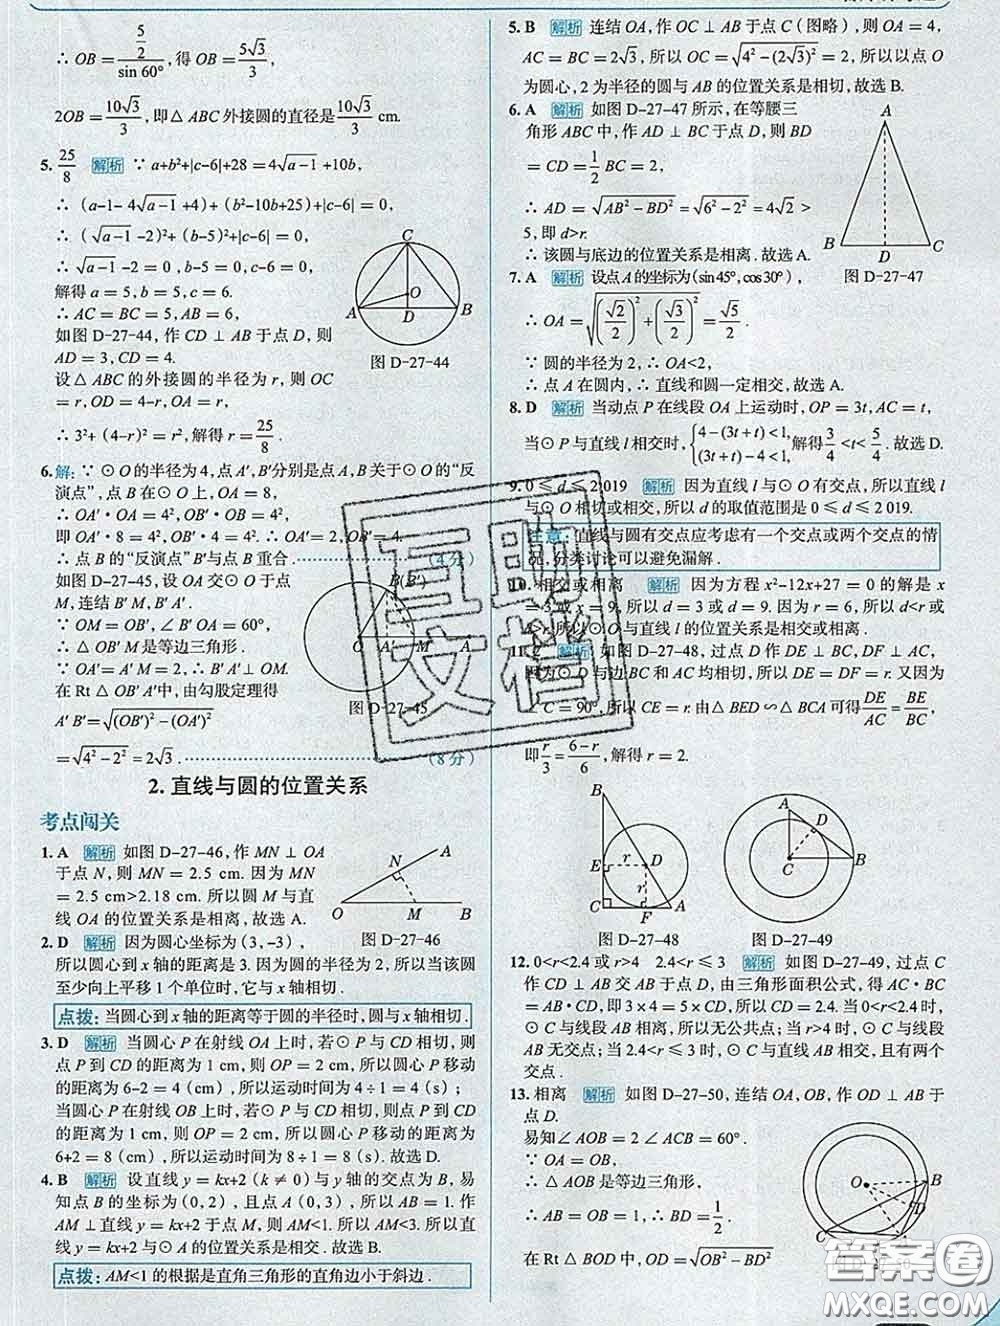 ∴ OB = (5/2)/sin60°, 得 OB = 5√3/3,
2OB = 10√3/3, 即△ABC 外接圆的直径是 10√3/3 cm.
5. 25/8 解析 ∵ a+b²+|c-6|+28 = 4√(a-1)+10b,
∴ (a-1-4√(a-1)+4)+(b²-10b+25)+|c-6| = 0,
∴ (√(a-1)-2)²+(b-5)²+|c-6| = 0,
∴ √(a-1)-2 = 0, b-5 = 0, c-6 = 0,
解得 a = 5, b = 5, c = 6.
∴ AC = BC = 5, AB = 6,
如图 D-27-44, 作 CD ⊥ AB 于点 D, 则
AD = 3, CD = 4.
设△ABC 的外接圆的半径为 r, 则 OC
= r, OD = 4-r, OA = r,
∴ 3²+(4-r)² = r², 解得 r = 25/8.
C
O
A D B
图 D-27-44
6. 解: ∵ ⊙O 的半径为 4, 点 A′, B′分别是点 A, B 关于⊙O 的“反
演点”, 点 B 在⊙O 上, OA = 8,
∴ OA′·OA = 4², OB′·OB = 4²,
即 OA′·8 = 4², OB′·4 = 4². ∴ OA′ = 2, OB′ = 4.
∴ 点 B 的“反演点”B′与点 B 重合 (4分)
如图 D-27-45, 设 OA 交⊙O 于点
M, 连结 B′M, B′A′.
∵ OM = OB′, ∠B′OA = 60°,
∴ △OB′M 是等边三角形.
∵ OA′ = A′M = 2, ∴ B′A′ ⊥ OM.
在 Rt△OB′A′中, 由勾股定理得
A′B′ = √((OB′)²-(OA′)²)
= √(4²-2²) = 2√3. (8分)
B(B′)
O A′ A
图 D-27-45
2. 直线与圆的位置关系
考点闯关
1. A 解析 如图 D-27-46, 作 MN ⊥ OA
于点 N, 则 MN = 2.5 cm. 因为 MN
= 2.5 cm>2.18 cm. 所以圆 M 与直
线 OA 的位置关系是相离, 故选 A.
A
N
O M B
图 D-27-46
2. D 解析 因为圆心坐标为(3, -3),
所以圆心到 x 轴的距离是 3. 因为圆的半径为 2, 所以当该圆
至少向上平移 1 个单位时, 它与 x 轴相切.
点拨: 当圆心到 x 轴的距离等于圆的半径时, 圆与 x 轴相切.
3. D 解析 当圆心 P 在射线 OA 上时, 若⊙P 与 CD 相切, 则
点 P 到 CD 的距离为 1 cm, 则 OP = 2 cm, 所以圆心 P 移动
的距离为 6-2 = 4(cm), 所以运动时间为 4÷1 = 4(s);
当圆心 P 在射线 OB 上时, 若⊙P 与 CD 相切, 则点 P 到 CD
的距离为 1 cm, 则 OP = 2 cm, 所以圆心 P 移动的距离为
6+2 = 8(cm), 所以运动时间为 8÷1 = 8(s). 故选 D.
4. B 解析 设直线 y = kx+2(k ≠ 0)与 y 轴的交点为 B, 易
知点 B 的坐标为(0, 2), 且点 A(0, 3), 所以 AB = 1. 作
AM ⊥直线 y = kx+2 于点 M, 则 AM<1. 所以 AM<3. 所以直
线 y = kx+2 与⊙A 的位置关系是相交. 故选 B.
点拨: AM<1 的根据是直角三角形的直角边小于斜边.
5. B 解析 连结 OA, 作 OC ⊥ AB 于点 C(图略), 则 OA = 4,
AC = BC = 2√3, 所以 OC = √(4²-(2√3)²) = 2, 所以以点 O
为圆心, 2 为半径的圆与 AB 的位置关系是相切, 故选 B.
6. A 解析 如图 D-27-47 所示, 在等腰三
角形 ABC 中, 作 AD ⊥ BC 于点 D, 则 BD
= CD = 1/2 BC = 2.
∴ AD = √(AB²-BD²) = √(6²-2²) = 4√2 >
5, 即 d>r.
∴ 该圆与底边的位置关系是相离. 故选 A.
A
B C
图 D-27-47
7. A 解析 设点 A 的坐标为(sin45°, cos30°),
∴ OA = √((√2/2)²+(√3/2)²) = √5/2.
∵ 圆的半径为 2, ∴ OA<2,
∴ 点 A 在圆内, ∴ 直线和圆一定相交, 故选 A.
8. D 解析 当动点 P 在线段 OA 上运动时, OP = 3t, AC = t,
当⊙P 与直线 l 相交时, {4-(3t+t)<1, (3t+t)-4<1, 解得 3/4 <t< 5/4. 故选 D.
9. 0 ≤ d ≤ 2 019 解析 因为直线 l 与⊙O 有交点, 所以直线 l
与⊙O 相切或相交, 所以 d 的取值范围是 0 ≤ d ≤ 2 019.
注意: 直线与圆有交点应考虑有一个交点或两个交点的情
况, 分类讨论可以避免漏解.
10. 相交或相离 解析 因为方程 x²-12x+27 = 0 的解是 x
= 3 或 x = 9, 所以 d = 3 或 d = 9. 因为 r = 6, 所以 d<r 或
d>r. 所以⊙O 与直线 l 的位置关系是相交或相离.
11. 2 解析 如图 D-27-48, 过点 D 作 DE ⊥ BC, DF ⊥ AC,
因为⊙O 与边 BC 和 AC 均相切, 所以 DE = DF = r. 又因为
∠C = 90°, 所以 CE = r. 由△BED ∽△BCA 可得 DE/AC = BE/BC,
即 r/3 = (6-r)/6, 解得 r = 2.
B
E r D
r
C F A
图 D-27-48
A
D
C B
图 D-27-49
12. 0<r<2.4 或 r>4 2.4<r ≤ 3 解析 如图 D-27-49, 过点 C
作 CD ⊥ AB 交 AB 于点 D, 由三角形面积公式, 得 AC·BC
= AB·CD, 即 3×4 = 5×CD, 所以 CD = 2.4. 当 0<r<2.4 时,
⊙C 与线段 AB 相离, 所以无公共点; 当 r>4 时, ⊙C 与线段
AB 无交点; 当 2.4<r ≤ 3 时, ⊙C 与线段 AB 相交, 且有两个
交点.
13. 相离 解析 如图 D-27-50, 连结 OA, OB, 作 OD ⊥ AB 于
点 D.
易知∠AOB = 2∠ACB = 60°.
∵ OA = OB,
∴ △AOB 是等边三角形,
∴ AB = OB = 1. ∴ BD = 1/2.
在 Rt△BOD 中, OD = √(OB²-BD²)
O B
C
互助文档
答案卷
MXQE.COM